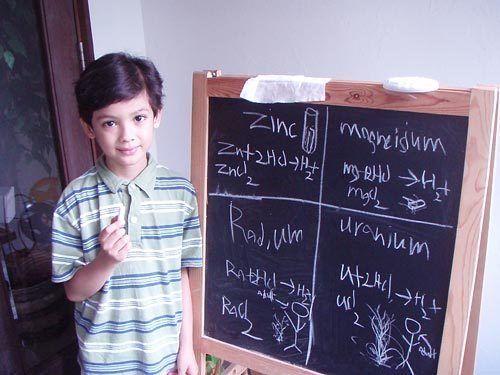 Zinc
Zn+2Hcl→H2+
ZnCl2
magnesium
mg+2Hcl→H2+
mgcl2
Radium
Ra+2Hcl→H2+
adult
Racl2
uranium
U+2Hcl→H2+
ucl2
adult